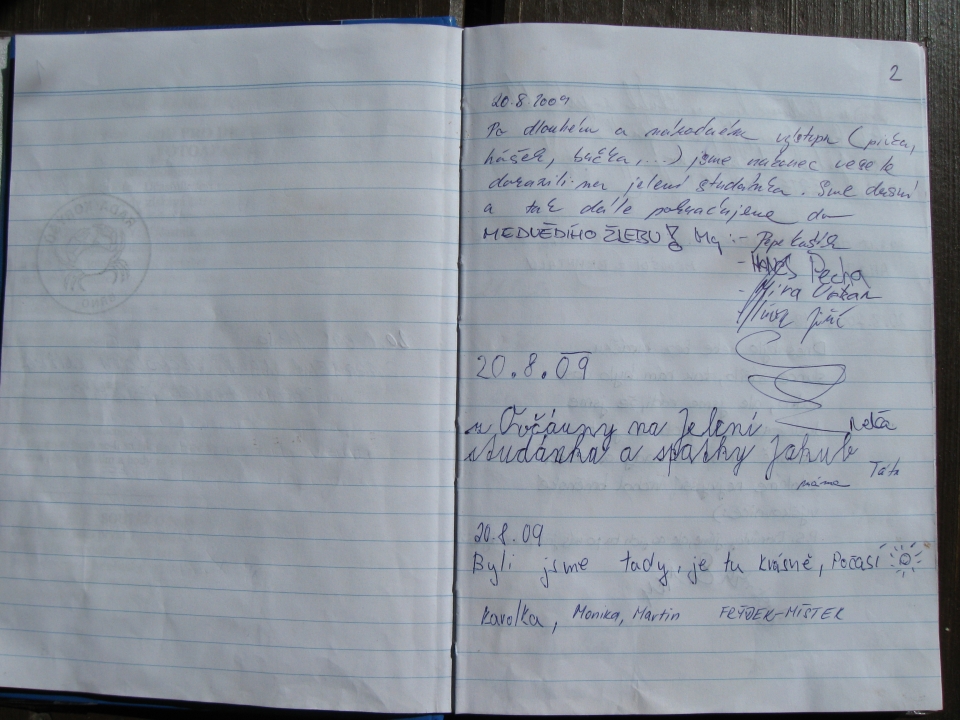 2
20.8.2009
Po dlouhém a náročném výstupu (pivka,
hášek, bučka, ...) jsme nakonec
dorazili na jelení studánka. Sme
a tak dále pokračujeme do
MEDVĚDÍHO ŽLEBU! My :- Pepe
- Pecha
- Míra

20.8.09
Neča
z Ovčárny na Jelení
studánka a spátky Jakub
Táta
máma
20.8.09
Byli jsme tady, je tu krásně, Počasí
Karolka, Monika, Martin FRÝDEK-MÍSTEK